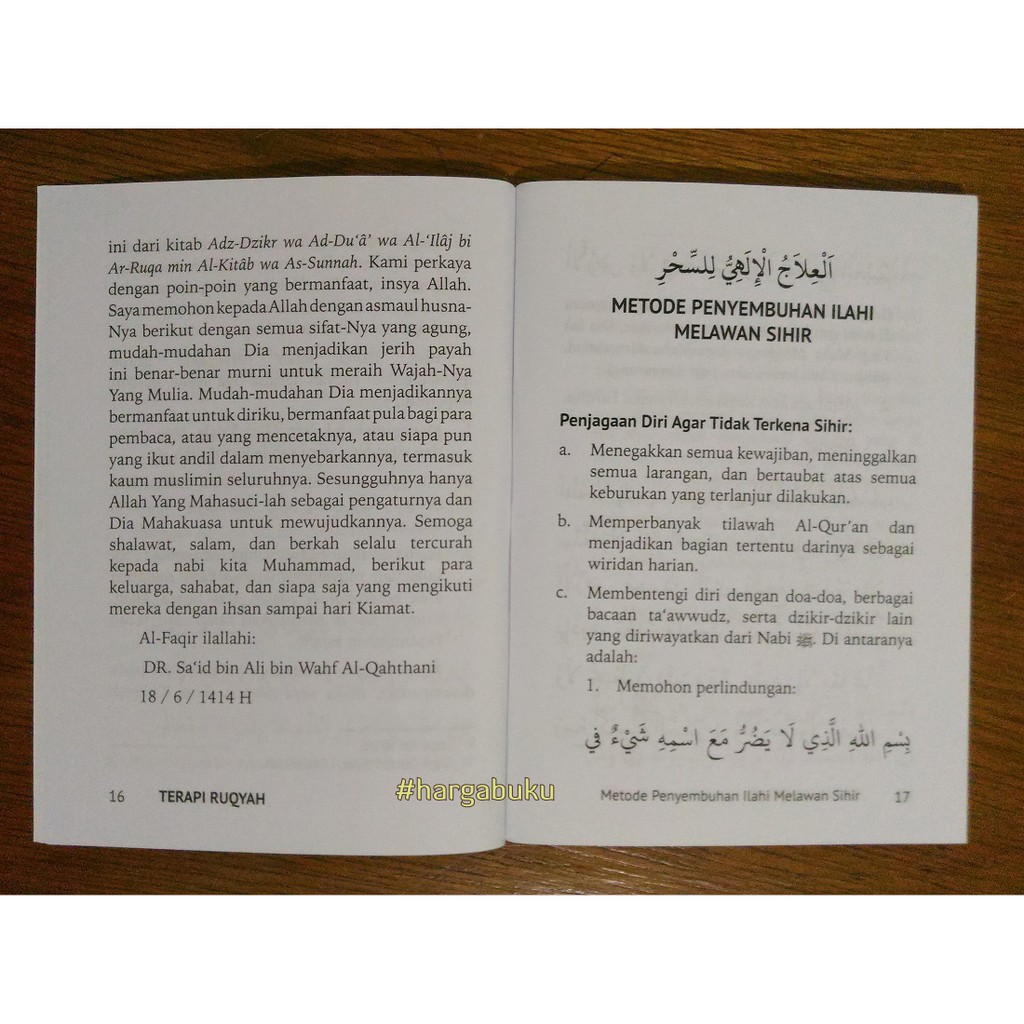 ini dari kitab Adz-Dzikr wa Ad-Du‘â’ wa Al-‘Ilâj bi
Ar-Ruqa min Al-Kitâb wa As-Sunnah. Kami perkaya
dengan poin-poin yang bermanfaat, insya Allah.
Saya memohon kepada Allah dengan asmaul husna-
Nya berikut dengan semua sifat-Nya yang agung,
mudah-mudahan Dia menjadikan jerih payah
ini benar-benar murni untuk meraih Wajah-Nya
Yang Mulia. Mudah-mudahan Dia menjadikannya
bermanfaat untuk diriku, bermanfaat pula bagi para
pembaca, atau yang mencetaknya, atau siapa pun
yang ikut andil dalam menyebarkannya, termasuk
kaum muslimin seluruhnya. Sesungguhnya hanya
Allah Yang Mahasuci-lah sebagai pengaturnya dan
Dia Mahakuasa untuk mewujudkannya. Semoga
shalawat, salam, dan berkah selalu tercurah
kepada nabi kita Muhammad, berikut para
keluarga, sahabat, dan siapa saja yang mengikuti
mereka dengan ihsan sampai hari Kiamat.
Al-Faqir ilallahi:
DR. Sa‘id bin Ali bin Wahf Al-Qahthani
18 / 6 / 1414 H
16 TERAPI RUQYAH
#hargabuku
اَلْعِلاَجُ الْإِلَهِيُّ لِلسِّحْرِ
METODE PENYEMBUHAN ILAHI
MELAWAN SIHIR
Penjagaan Diri Agar Tidak Terkena Sihir:
a. Menegakkan semua kewajiban, meninggalkan
semua larangan, dan bertaubat atas semua
keburukan yang terlanjur dilakukan.
b. Memperbanyak tilawah Al-Qur’an dan
menjadikan bagian tertentu darinya sebagai
wiridan harian.
c. Membentengi diri dengan doa-doa, berbagai
bacaan ta‘awwudz, serta dzikir-dzikir lain
yang diriwayatkan dari Nabi ﷺ. Di antaranya
adalah:
1. Memohon perlindungan:
بِسْمِ اللهِ الَّذِي لَا يَضُرُّ مَعَ اسْمِهِ شَيْءٌ فِي
Metode Penyembuhan Ilahi Melawan Sihir 17